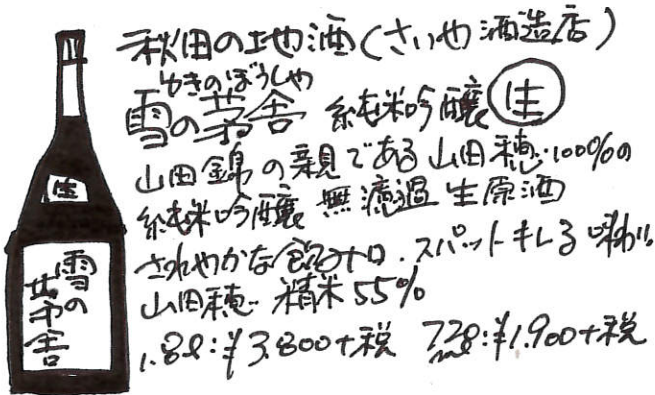 秋田の地酒(さいや酒造店)
ゆきのぼうしや
雪の茅舎 純米吟醸 生
山田錦の親である山田穂100%の
純米吟醸 無濾過生原酒
さわやかな飲み口.スパットキレる味わい
山田穂 精米55%
1.8ℓ:¥3.800+税 720ml:¥1.900+税
生
雪の
茅舎